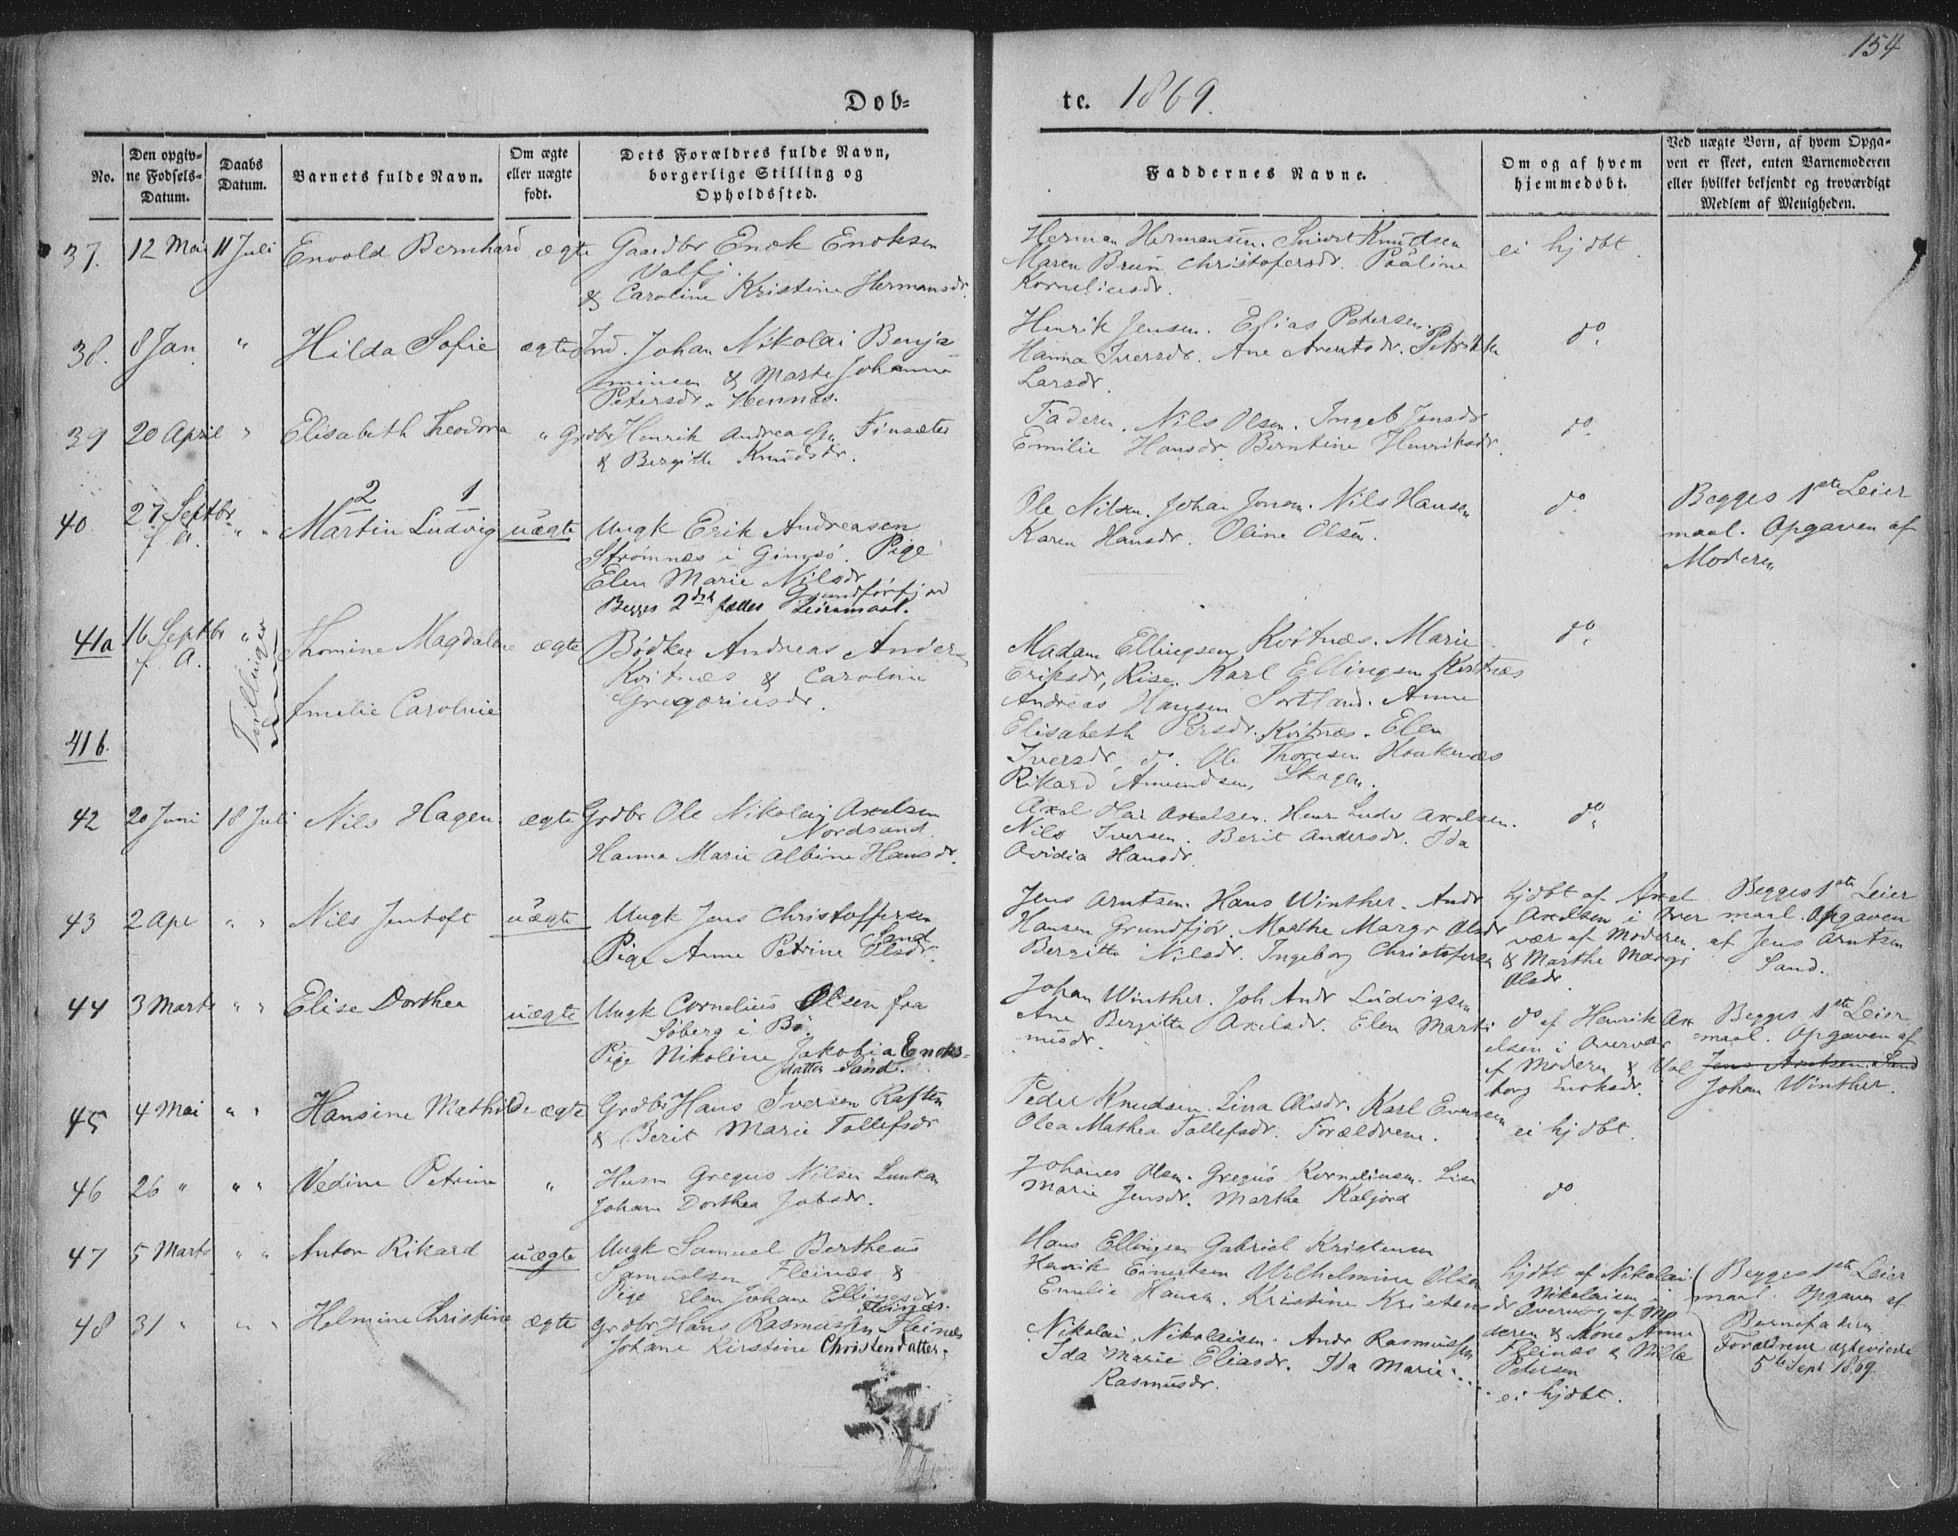 154
Døb=
te. 1869.
No.
Den opgiv=
ne Fødsels=
Datum.
Daabs
Datum.
Barnets fulde Navn.
Om ægte
eller uægte
født.
Dets Forældres fulde Navn,
borgerlige Stilling og
Opholdssted.
Faddernes Navne.
Om og af hvem
hjemmedøbt.
Ved uægte Børn, af hvem Opga=
ven er skeet, enten Barnemoderen
eller hvilket bekjendt og troværdigt
Medlem af Menigheden.
37. 12 Mai 11 Juli Envold Bernhard ægte Gaardbr Enok Enoksen
Valfj.
& Caroline Kristine Hermansdr.
Herman Hermansen. Sivert Knudsen
Maren Brun Christofersdr. Pauline
Korneliusdr.
ei hjdøbt.
38. 8 Jan. " Hilda Sofie ægte Ind. Johan Nikolai Benja
minsen & Marte Johanna
Petersdr. Hennæs.
Henrik Jensen. Elias Petersen.
Hanna Iversdr. Ane Arentsdr. Petrikke
Larsdr.
do.
39 20 April " Elisabeth Theodora " Grdbr Henrik Andreassen Finsæter
& Bergitte Knudsdr.
Faderen. Nils Olsen. Ingeb Jensdr
Emilie Hansdr. Berntine Henriksdr.
do.
40 27 Septbr f. A. " " 2 1
Martin Ludvig uægte Ungk Erik Andreasen
Strømnæs i Gimsø. Pige
Elen Marie Nilsdr
Grundførfjord
Begges 2det fælles Leiermaal.
Ole Nilsen. Johan Jonsen. Nils Hansen
Karen Hansdr. Oline Olsen.
do.
Begges 1ste Leier
maal. Opgaven af
Moderen
41a 16 Septbr f. A. " Tvillinger Thomine Magdalene ægte Bødker Andreas Anders
Kvitnæs & Caroline
Gregoriusdr.
Amelie Caroline
41b.
Madam Ellingsen Kvitnæs. Marie
Eriksdr, Rise. Karl Ellingsen Kvitnæs
Andreas Hansen Sortland. Anne
Elisabeth Persdr. Kvitnæs. Elen
Iversdr, do. Ole Thoresen Haukenæs
Rikard Amundsen, Skagen.
do.
42 20 Juni 18 Juli Nils Hagen ægte Grdbr Ole Nikolai Axelsen
Nordsand.
Hanna Marie Albine Hansdr.
Axel Hai Axelsen. Henr Ludv Axelsen.
Nils Iversen. Berit Andersdr. Ida
Ovidia Hansdr.
do.
43 2 Apr " " Nils Jentoft uægte Ungk Jens Christoffersen
Sand
Pige Anne Petrine Olsdr.
Jens Arntsen. Hans Winther. Andr
Hansen Grundfjör. Marthe Margr Olsdr
Bergitte Nilsdr. Ingeborg Christofersen
hjdøbt af Axel
Axelsen i Over
vær af Moderen
& Marthe Margr
Olsdr.
Begges 1ste Leier
maal. Opgaven
af Jens Arntsen
Sand.
44 3 Marts " " Elise Dorthea uægte Ungk Cornelius Olsen fra
Søberg i Bø.
Pige Nikoline Jakobia Enoks-
datter Sand.
Johan Winther. Joh Andr Ludvigsen
Ane Bergitte Axelsdr. Elen Marti
nusdr.
do af Henrik Ax
elsen i Overvær
af Moderen & Vol
borg Enoksdr.
Begges 1ste Leier
maal. Opgaven af
Jens Arntsen Sand
Johan Winther.
45 4 Mai " " Hansine Mathilde ægte Grdbr Hans Iversen Raften
& Berit Marie Tollefsdr
Peder Knudsen. Lina Olsdr. Karl Evensen
Olea Mathea Tollefsdr. Forældrene.
ei hjdøbt.
46 26 " " " Vedine Petrine " Husm Gregus Nilsen Lunkan
Johane Dorthea Jakobsdr.
Johanes Olsen. Gregus Kornelinsen. Lise
Marie Jensdr. Marthe Kaljord
do
47 5 Marts " " Anton Rikard uægte Ungk Samuel Bertheus
Samuelsen Fleinæs &
Pige Elen Johane Ellingsdr
Fleinæs.
Hans Ellingsen Gabriel Kristensen
Henrik Einertsen Wilhelmine Olsen
Emilie Hansen. Kristine Kristensdr
hjdøbt af Nikolai
Nikolaisen i
Overvær af Mo
deren & Kone Anne
Fleinæs & Nille
Petersen
Begges 1ste Leier
maal. Opgaven af
Barnefaderen
Forældrene ægteviede
5te Sept 1869.
48 31 " " " Helmine Christine ægte Grdbr Hans Rasmussen Fleinæs
Johane Kirstine Christendatter.
Nikolai Nikolaisen. Andr Rasmussen
Ida Marie Eliasdr. Ida Marie
Rasmusdr.
ei hjdøbt.